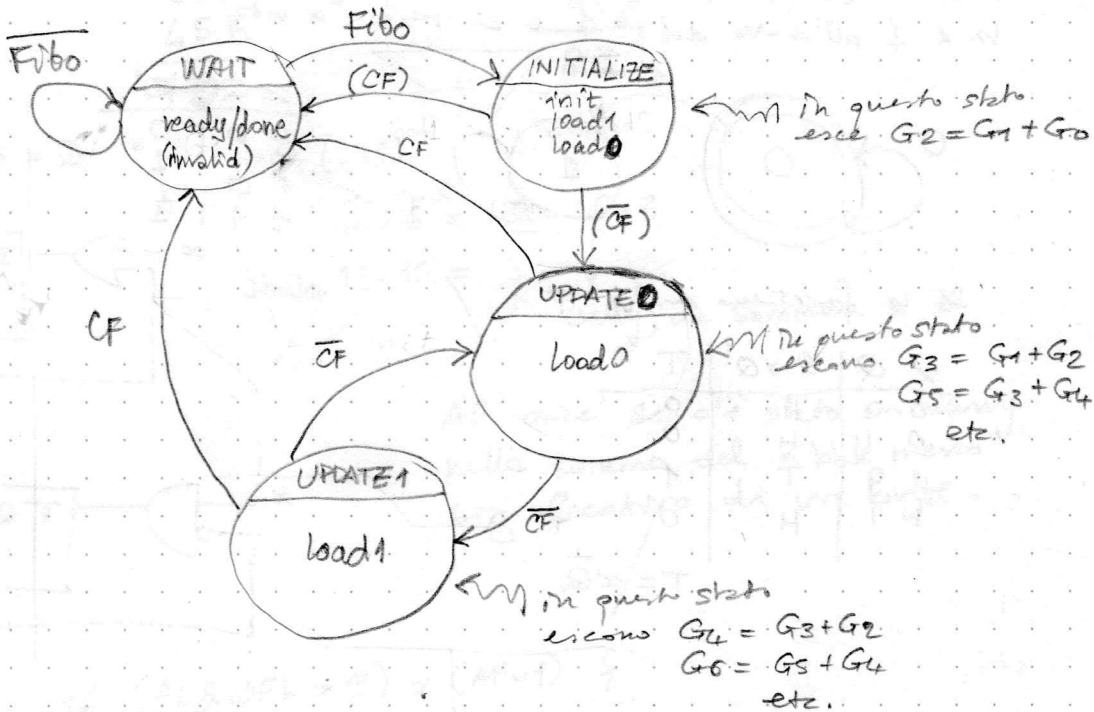 Fibo
Fibo
WAIT
ready/done
(invalid)
(CF)
CF
INITIALIZE
init
load1
load0
in questo stato
esce G2 = G1 + G0
(CF)
UPDATE0
load0
in questo stato
escono G3 = G1 + G2
G5 = G3 + G4
etc.
CF
CF
UPDATE1
load1
CF
in questo stato
escono G4 = G3 + G2
G6 = G5 + G4
etc.